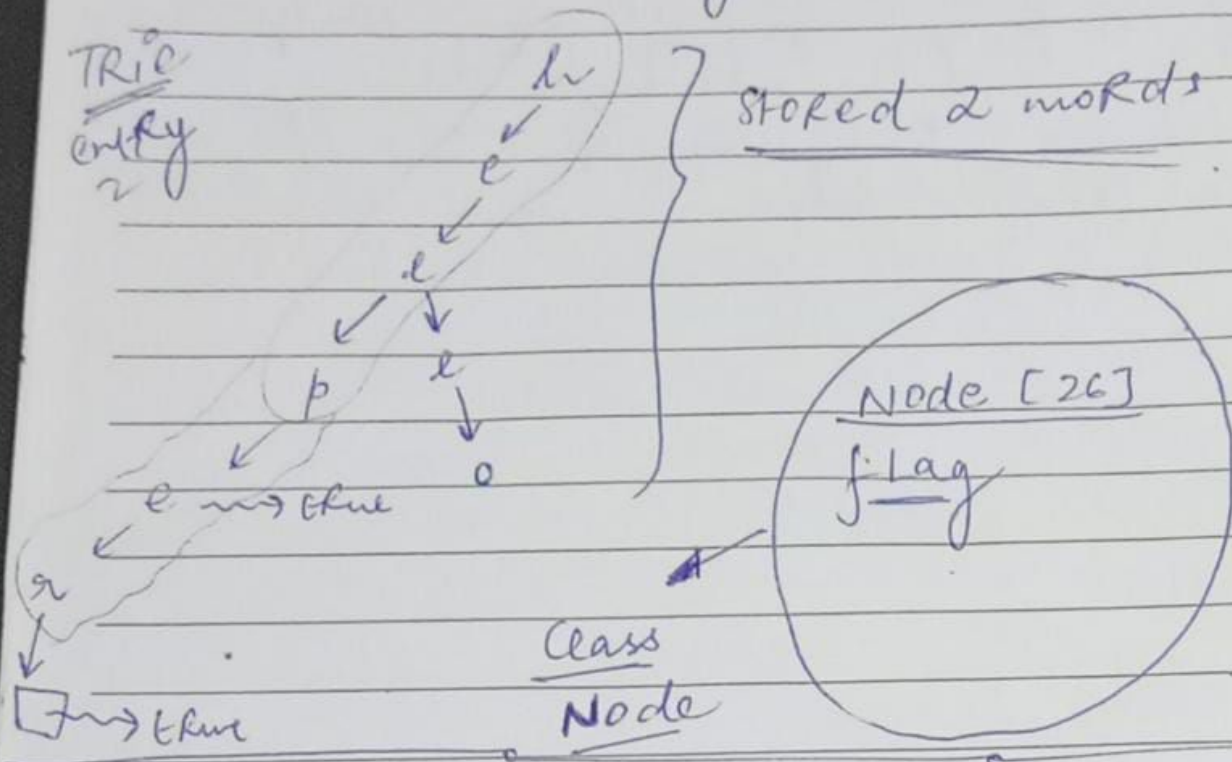 TRie
entry
2
h
e
l
p
l
e ~~> true
o
r
□ ~~> true
Stored 2 words
Node [26]
flag
Class
Node